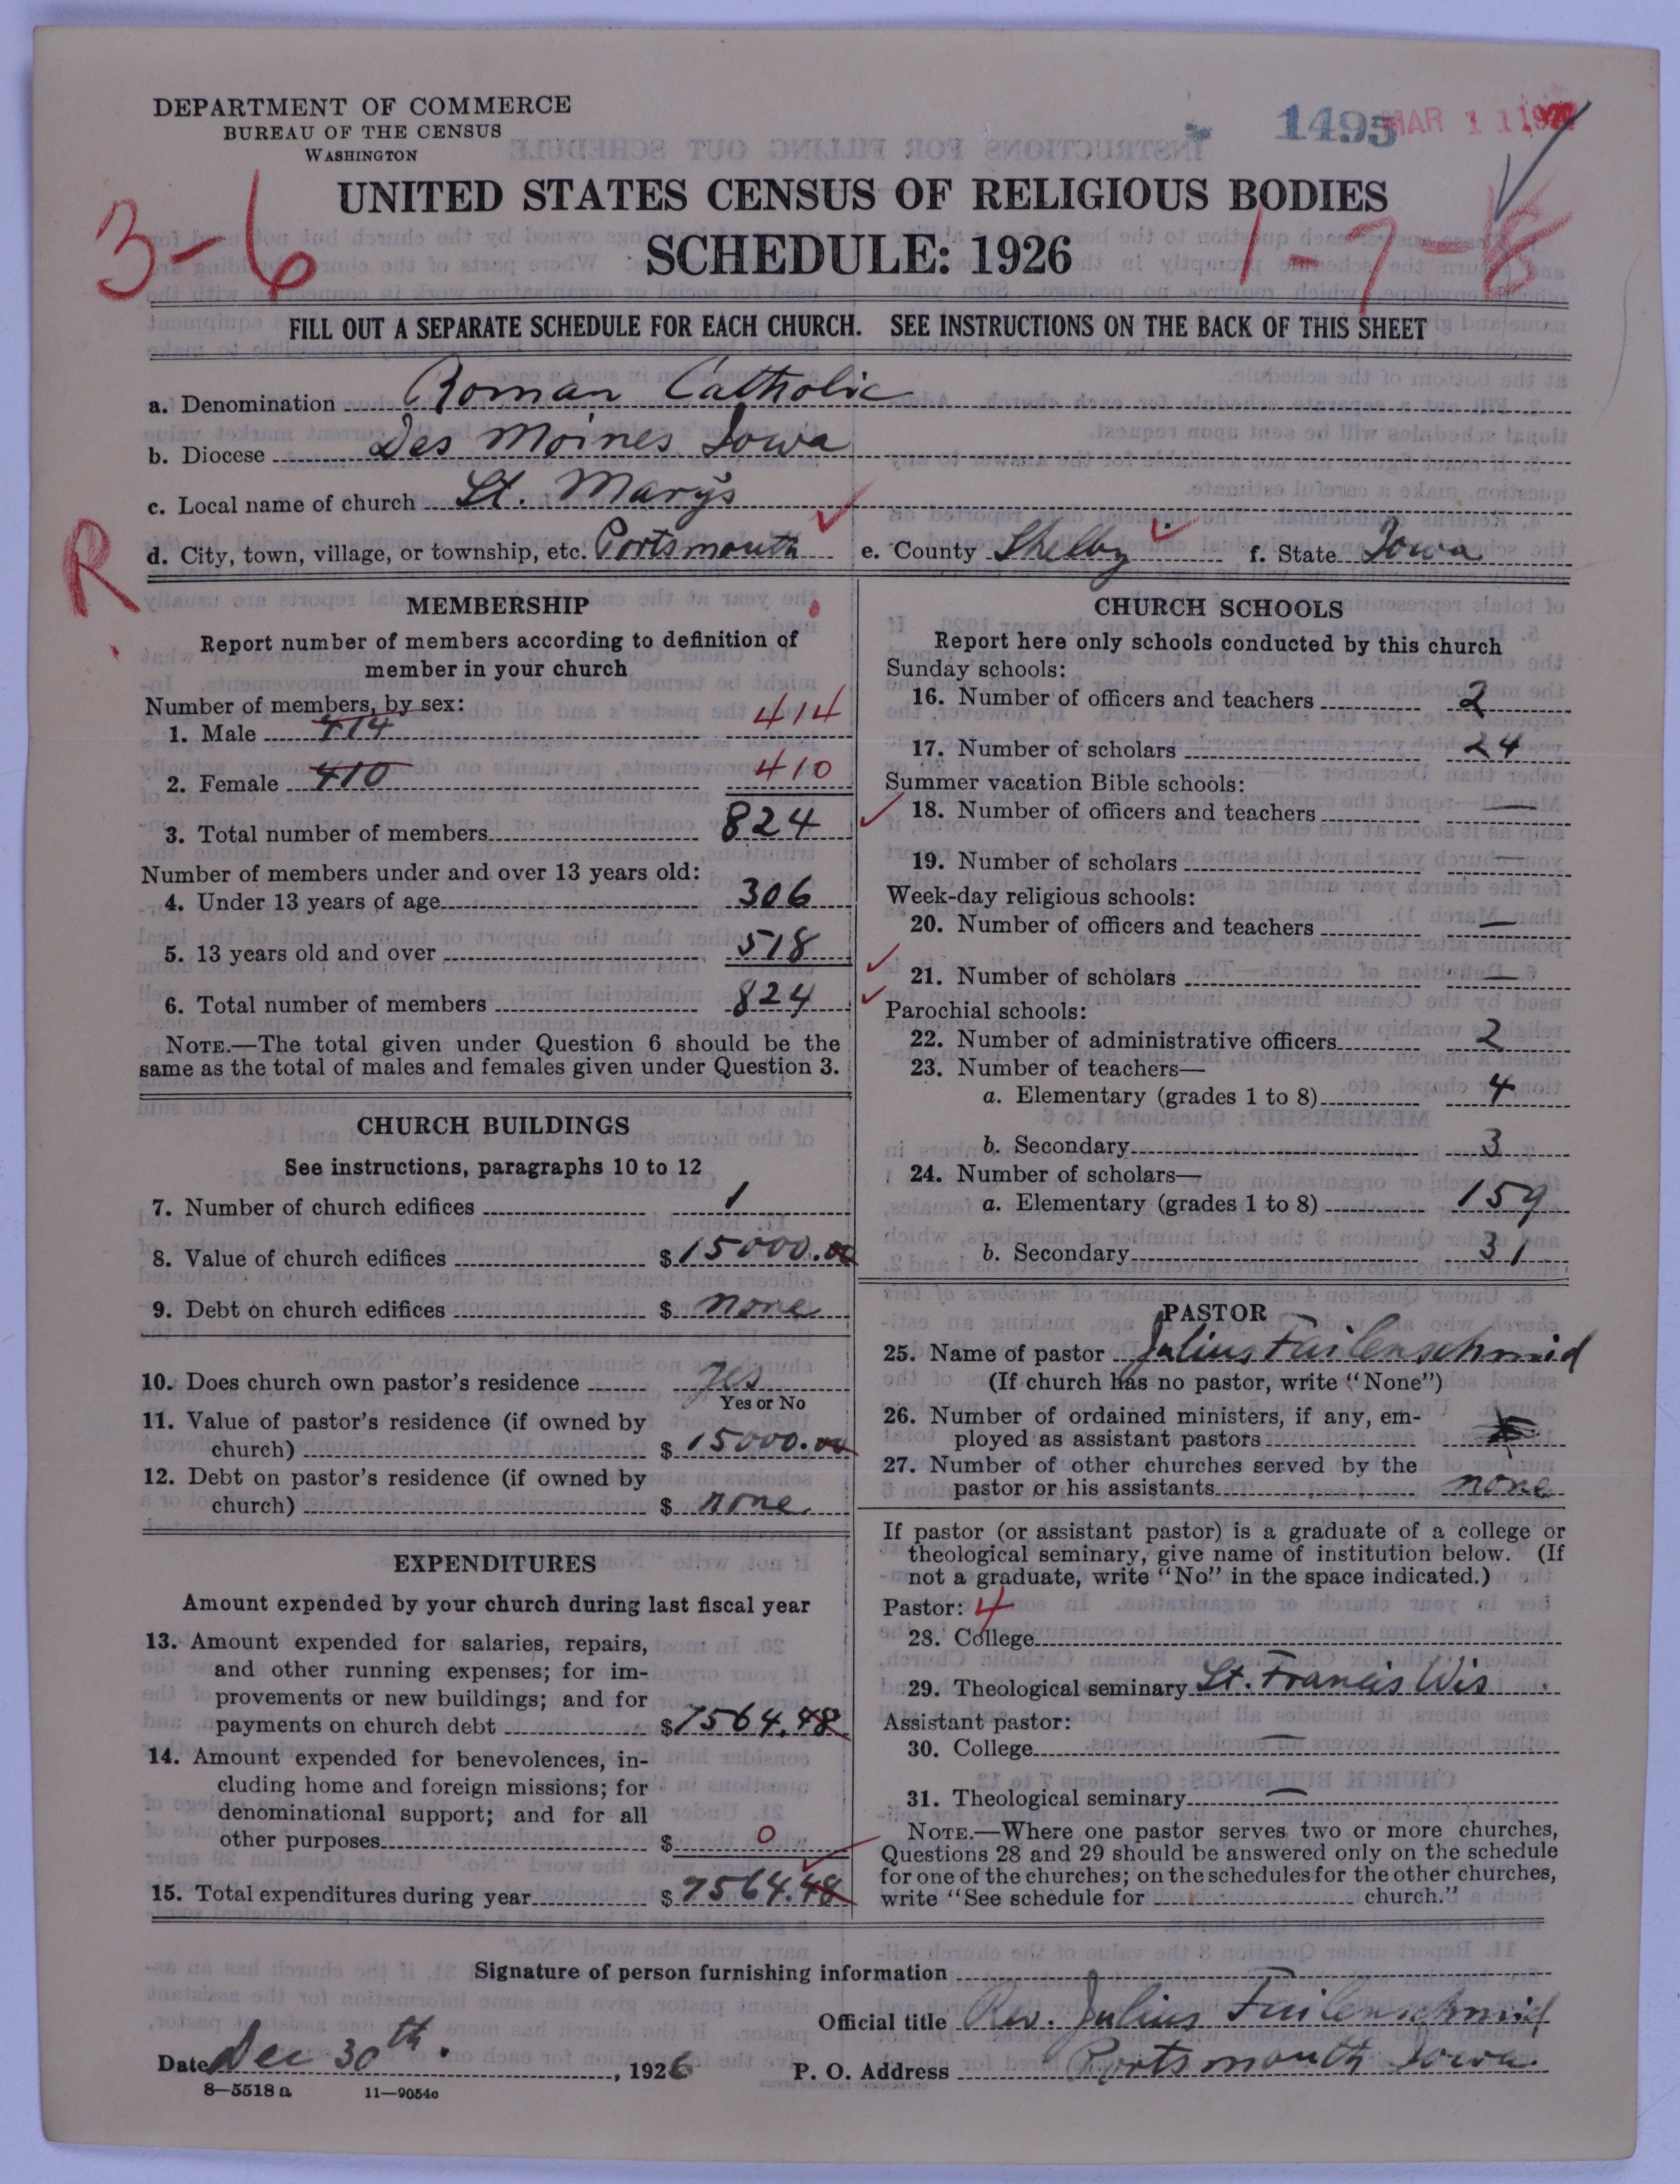 DEPARTMENT OF COMMERCE
BUREAU OF THE CENSUS
WASHINGTON
1495 MAR 11
UNITED STATES CENSUS OF RELIGIOUS BODIES
SCHEDULE: 1926
3-6
1-7-8
FILL OUT A SEPARATE SCHEDULE FOR EACH CHURCH. SEE INSTRUCTIONS ON THE BACK OF THIS SHEET
a. Denomination Roman Catholic
b. Diocese Des Moines Iowa
c. Local name of church St. Mary's
d. City, town, village, or township, etc. Portsmouth e. County Shelby f. State Iowa
R
MEMBERSHIP
Report number of members according to definition of
member in your church
Number of members, by sex:
1. Male 414 414
2. Female 410 410
3. Total number of members 824
Number of members under and over 13 years old:
4. Under 13 years of age 306
5. 13 years old and over 518
6. Total number of members 824
NOTE.—The total given under Question 6 should be the
same as the total of males and females given under Question 3.
CHURCH BUILDINGS
See instructions, paragraphs 10 to 12
7. Number of church edifices 1
8. Value of church edifices $15000.00
9. Debt on church edifices $ none
10. Does church own pastor's residence yes
Yes or No
11. Value of pastor's residence (if owned by
church) $15000.00
12. Debt on pastor's residence (if owned by
church) $ none
EXPENDITURES
Amount expended by your church during last fiscal year
13. Amount expended for salaries, repairs,
and other running expenses; for im-
provements or new buildings; and for
payments on church debt $7564.48
14. Amount expended for benevolences, in-
cluding home and foreign missions; for
denominational support; and for all
other purposes $ 0
15. Total expenditures during year $7564.48
CHURCH SCHOOLS
Report here only schools conducted by this church
Sunday schools:
16. Number of officers and teachers 2
17. Number of scholars 24
Summer vacation Bible schools:
18. Number of officers and teachers —
19. Number of scholars —
Week-day religious schools:
20. Number of officers and teachers —
21. Number of scholars —
Parochial schools:
22. Number of administrative officers 2
23. Number of teachers—
a. Elementary (grades 1 to 8) 4
b. Secondary 3
24. Number of scholars—
a. Elementary (grades 1 to 8) 159
b. Secondary 31
PASTOR
25. Name of pastor Julius Failenschmid
(If church has no pastor, write "None")
26. Number of ordained ministers, if any, em-
ployed as assistant pastors
27. Number of other churches served by the
pastor or his assistants none
If pastor (or assistant pastor) is a graduate of a college or
theological seminary, give name of institution below. (If
not a graduate, write "No" in the space indicated.)
Pastor: 4
28. College
29. Theological seminary St. Francis Wis
Assistant pastor:
30. College —
31. Theological seminary —
NOTE.—Where one pastor serves two or more churches,
Questions 28 and 29 should be answered only on the schedule
for one of the churches; on the schedules for the other churches,
write "See schedule for church."
Signature of person furnishing information
Official title Rev. Julius Failenschmid
Date Dec 30th. , 1926 P. O. Address Portsmouth Iowa.
8-5518a 11-9054c